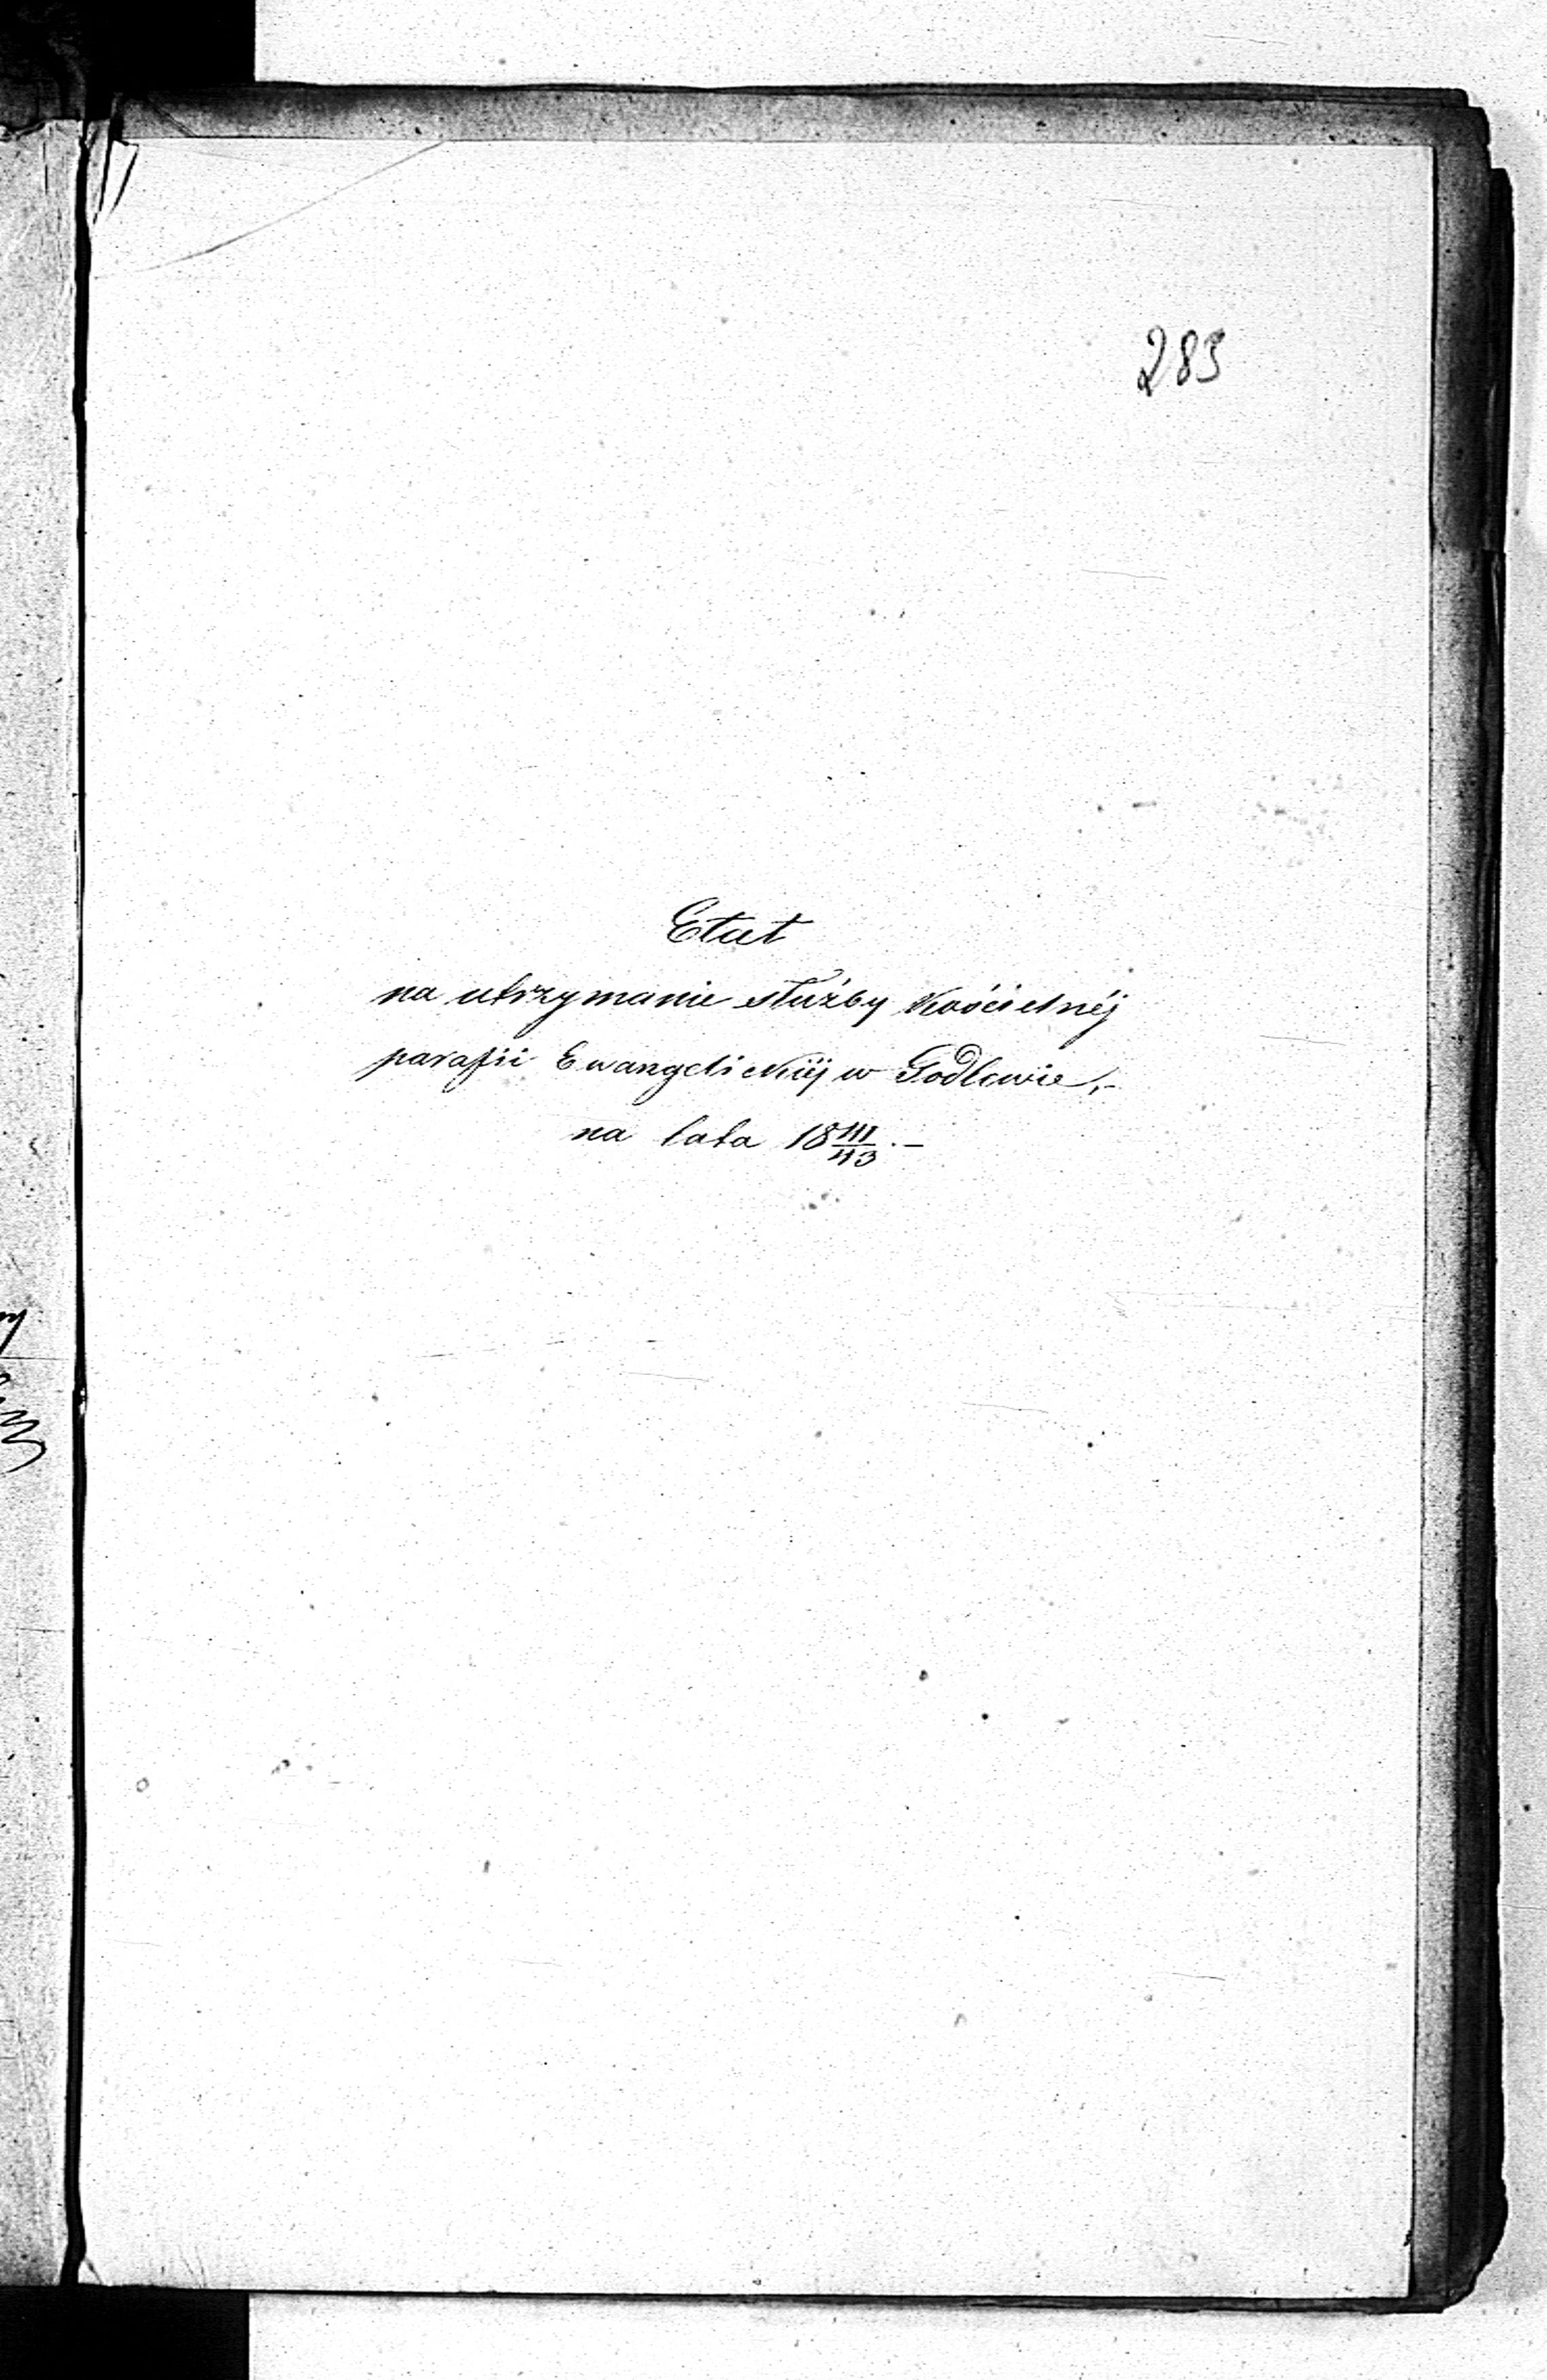 283
Etat
na utrzymanie służby Kościelnéj
parafii Ewangelickiéj w Godlewie,-
na lata 18 41/43.-